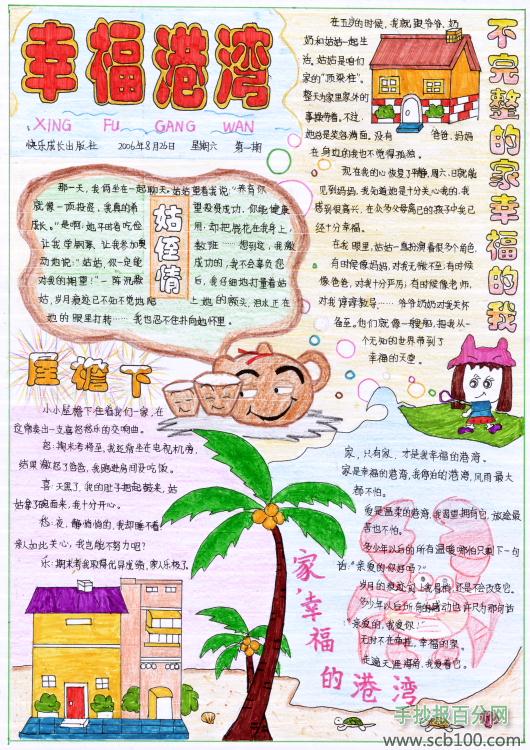 幸福港湾
XING FU GANG WAN
快乐成长出版社 2006年8月26日 星期六 第一期
不完整的家幸福的我
在五岁的时候,我就跟爷爷、奶
奶和姑姑一起生
活。姑姑是咱们
家的“顶梁柱”。
整天为家里家外的
事操劳着。不过,
她总是笑容满面。没有 爸爸、妈妈
在身边的我也不觉得孤独。
现在我的心恢复了平静,周六、日就能
见到妈妈,我知道她是十分关心我的,我
感到很高兴,在众多父母离已的孩子中我已
经十分幸福。
在我眼里,姑姑一直扮演着很多个角色,
有时候像妈妈,对我无微不至;有时候
像爸爸,对我十分严厉;有时候像老师,
对我谆谆教导……爷爷奶奶对我关怀
备至。他们就像一艘船,把我从一
个无知的世界带到了
幸福的天堂。
姑侄情
那一天,我俩坐在一起聊天。姑姑望着我说:“养育你
就像一项投资,我真的希望投资成功,你能健康
成长。”是啊,她平时省吃俭用,却把钱花在我身上,
让我学钢琴、让我参加奥数班……想到这,我激
动地说:“姑姑,你一定能成功的,我不会辜负您
对我的期望!”一阵沉默后,我仔细地打量着姑
姑,岁月痕迹已不知不觉地陪上她的额头,泪水正在
她的眼里打转……我也忍不住扑向她怀里。
屋檐下
小小屋檐下住着我们一家,在
这演奏出一支喜怒哀乐的交响曲。
怒:期末考将至,我还痴坐在电视机旁,
结果激怒了爸爸,我跑进房间没吃饭。
喜:天黑了,我的肚子把起鼓来,姑
姑拿了碗面来,我十分开心。
愁:夜,静悄悄的,我却睡不着。
亲人如此关心,我岂能不努力呢?
乐:期末考我取得优异成绩,家人乐极了。
家,只有家,才是我幸福的港湾。
家是幸福的港湾,我停泊的港湾,风雨最大
都不怕。
爱是温柔的港湾,我渴望拥有它,旅途最
苦也不怕。
多少年以后的所有温暖,哪怕只剩下一句
话:“亲爱的你好吗?”
多少年以后所有的感动也许只为那句话
:“亲爱的,我爱你!”
走遍天涯海角,我爱着它。
家,幸福的港湾
手抄报百分网
www.scb100.com